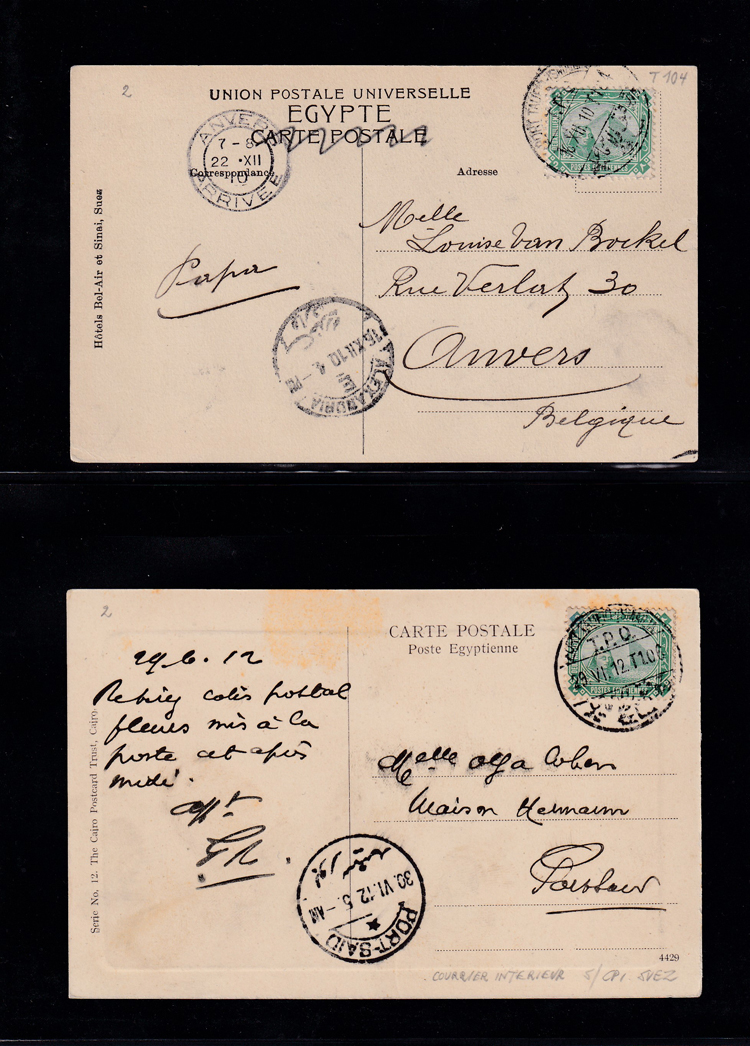 2
T 104
UNION POSTALE UNIVERSELLE
EGYPTE
CARTE POSTALE
ANVERS
7 - 8
22 •XII
10
ARRIVEE
Correspondance
Adresse
Hôtels Bel-Air et Sinai, Suez
Melle
Louise Van Bockel
Rue Verlat 30
Anvers
Belgique
Papa
ALEXANDRIA
XII.10. 4
2
CARTE POSTALE
Poste Egyptienne
T.P.O.
29.VI.12.T102
POSTES EGYPTIENNES
29.6.12
colis postal
fleurs mis à la
poste
midi.
Serie No. 12. The Cairo Postcard Trust, Cairo.
Melle Olga Cohen
Maison Hermann
Portsaid
بور سعيد
30.VI.12.5.-AM
PORT-SAID
4429
COURRIER INTERIEUR S/ CPI SUEZ